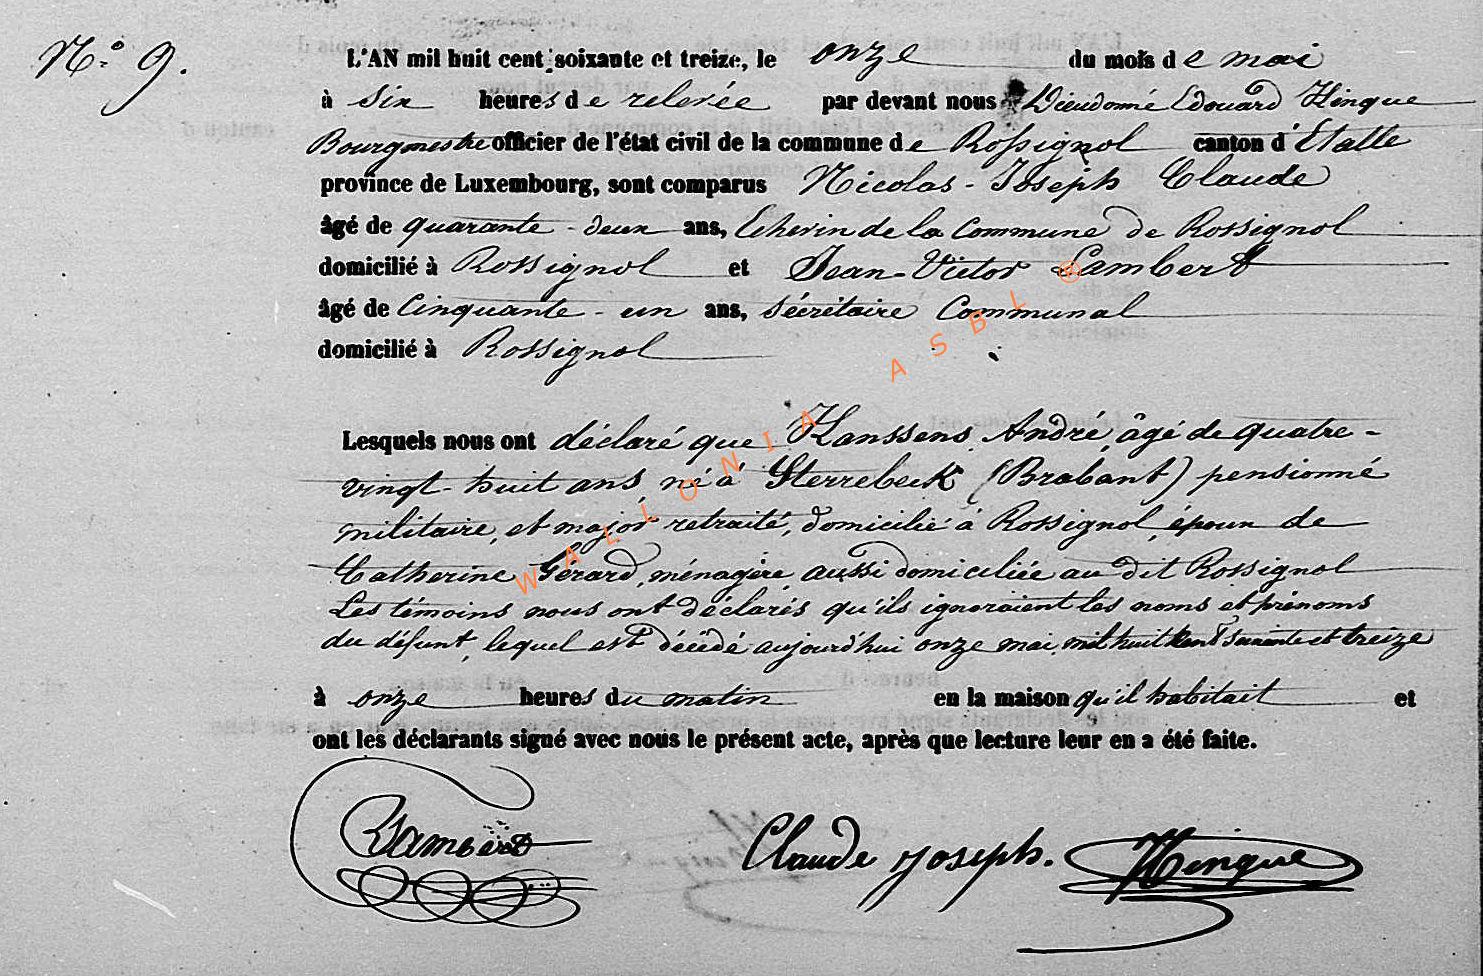 N.° 9.
L'AN mil huit cent soixante et treize, le onze du mois de mai
à six heures de relevée par devant nous Dieudonné Edouard Hinque
Bourgmestre officier de l'état civil de la commune de Rossignol canton d'Etalle
province de Luxembourg, sont comparus Nicolas-Joseph Claude
âgé de quarante-deux ans, Echevin de la Commune de Rossignol
domicilié à Rossignol et Jean-Victor Lambert
âgé de Cinquante-un ans, sécrétaire Communal
domicilié à Rossignol
Lesquels nous ont déclaré que Hanssens André, âgé de quatre-
vingt-huit ans, né à Sterrebeek (Brabant) pensionné
militaire, et major retraité, domicilié à Rossignol, époux de
Catherine Gérard, ménagère, aussi domiciliée au dit Rossignol
Les témoins nous ont déclarés qu'ils ignoraient les noms et prénoms
du défunt, lequel est décédé aujourd'hui onze mai, mil huit cent soixante et treize
à onze heures du matin en la maison qu'il habitait et
ont les déclarants signé avec nous le présent acte, après que lecture leur en a été faite.
Lambert Claude Joseph. Hinque
WALLONIA ASBL ®